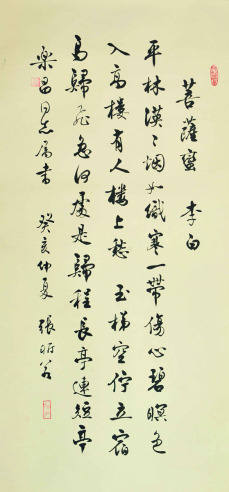 菩薩蠻 李白
平林漠漠烟如織寒一帶傷心碧暝色
入高樓有人樓上愁 玉梯空佇立宿
鳥歸飛急何處是歸程長亭連短亭
樂昌同志屬書 癸亥仲夏 張